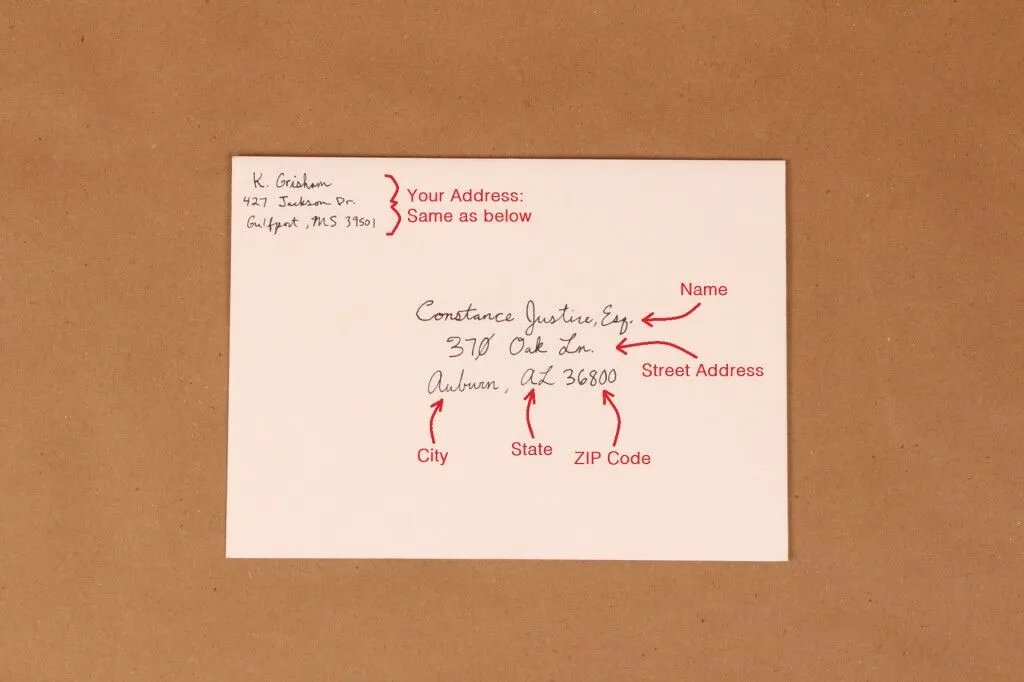 K. Grisham
427 Jackson Dr.
Gulfport, MS 39501
Your Address:
Same as below
Name
Constance Justice, Esq.
370 Oak Ln.
Street Address
Auburn, AL 36800
City
State
ZIP Code